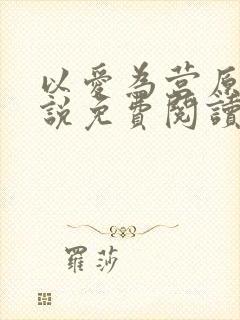 以愛為営原
說免費閱讀
羅莎